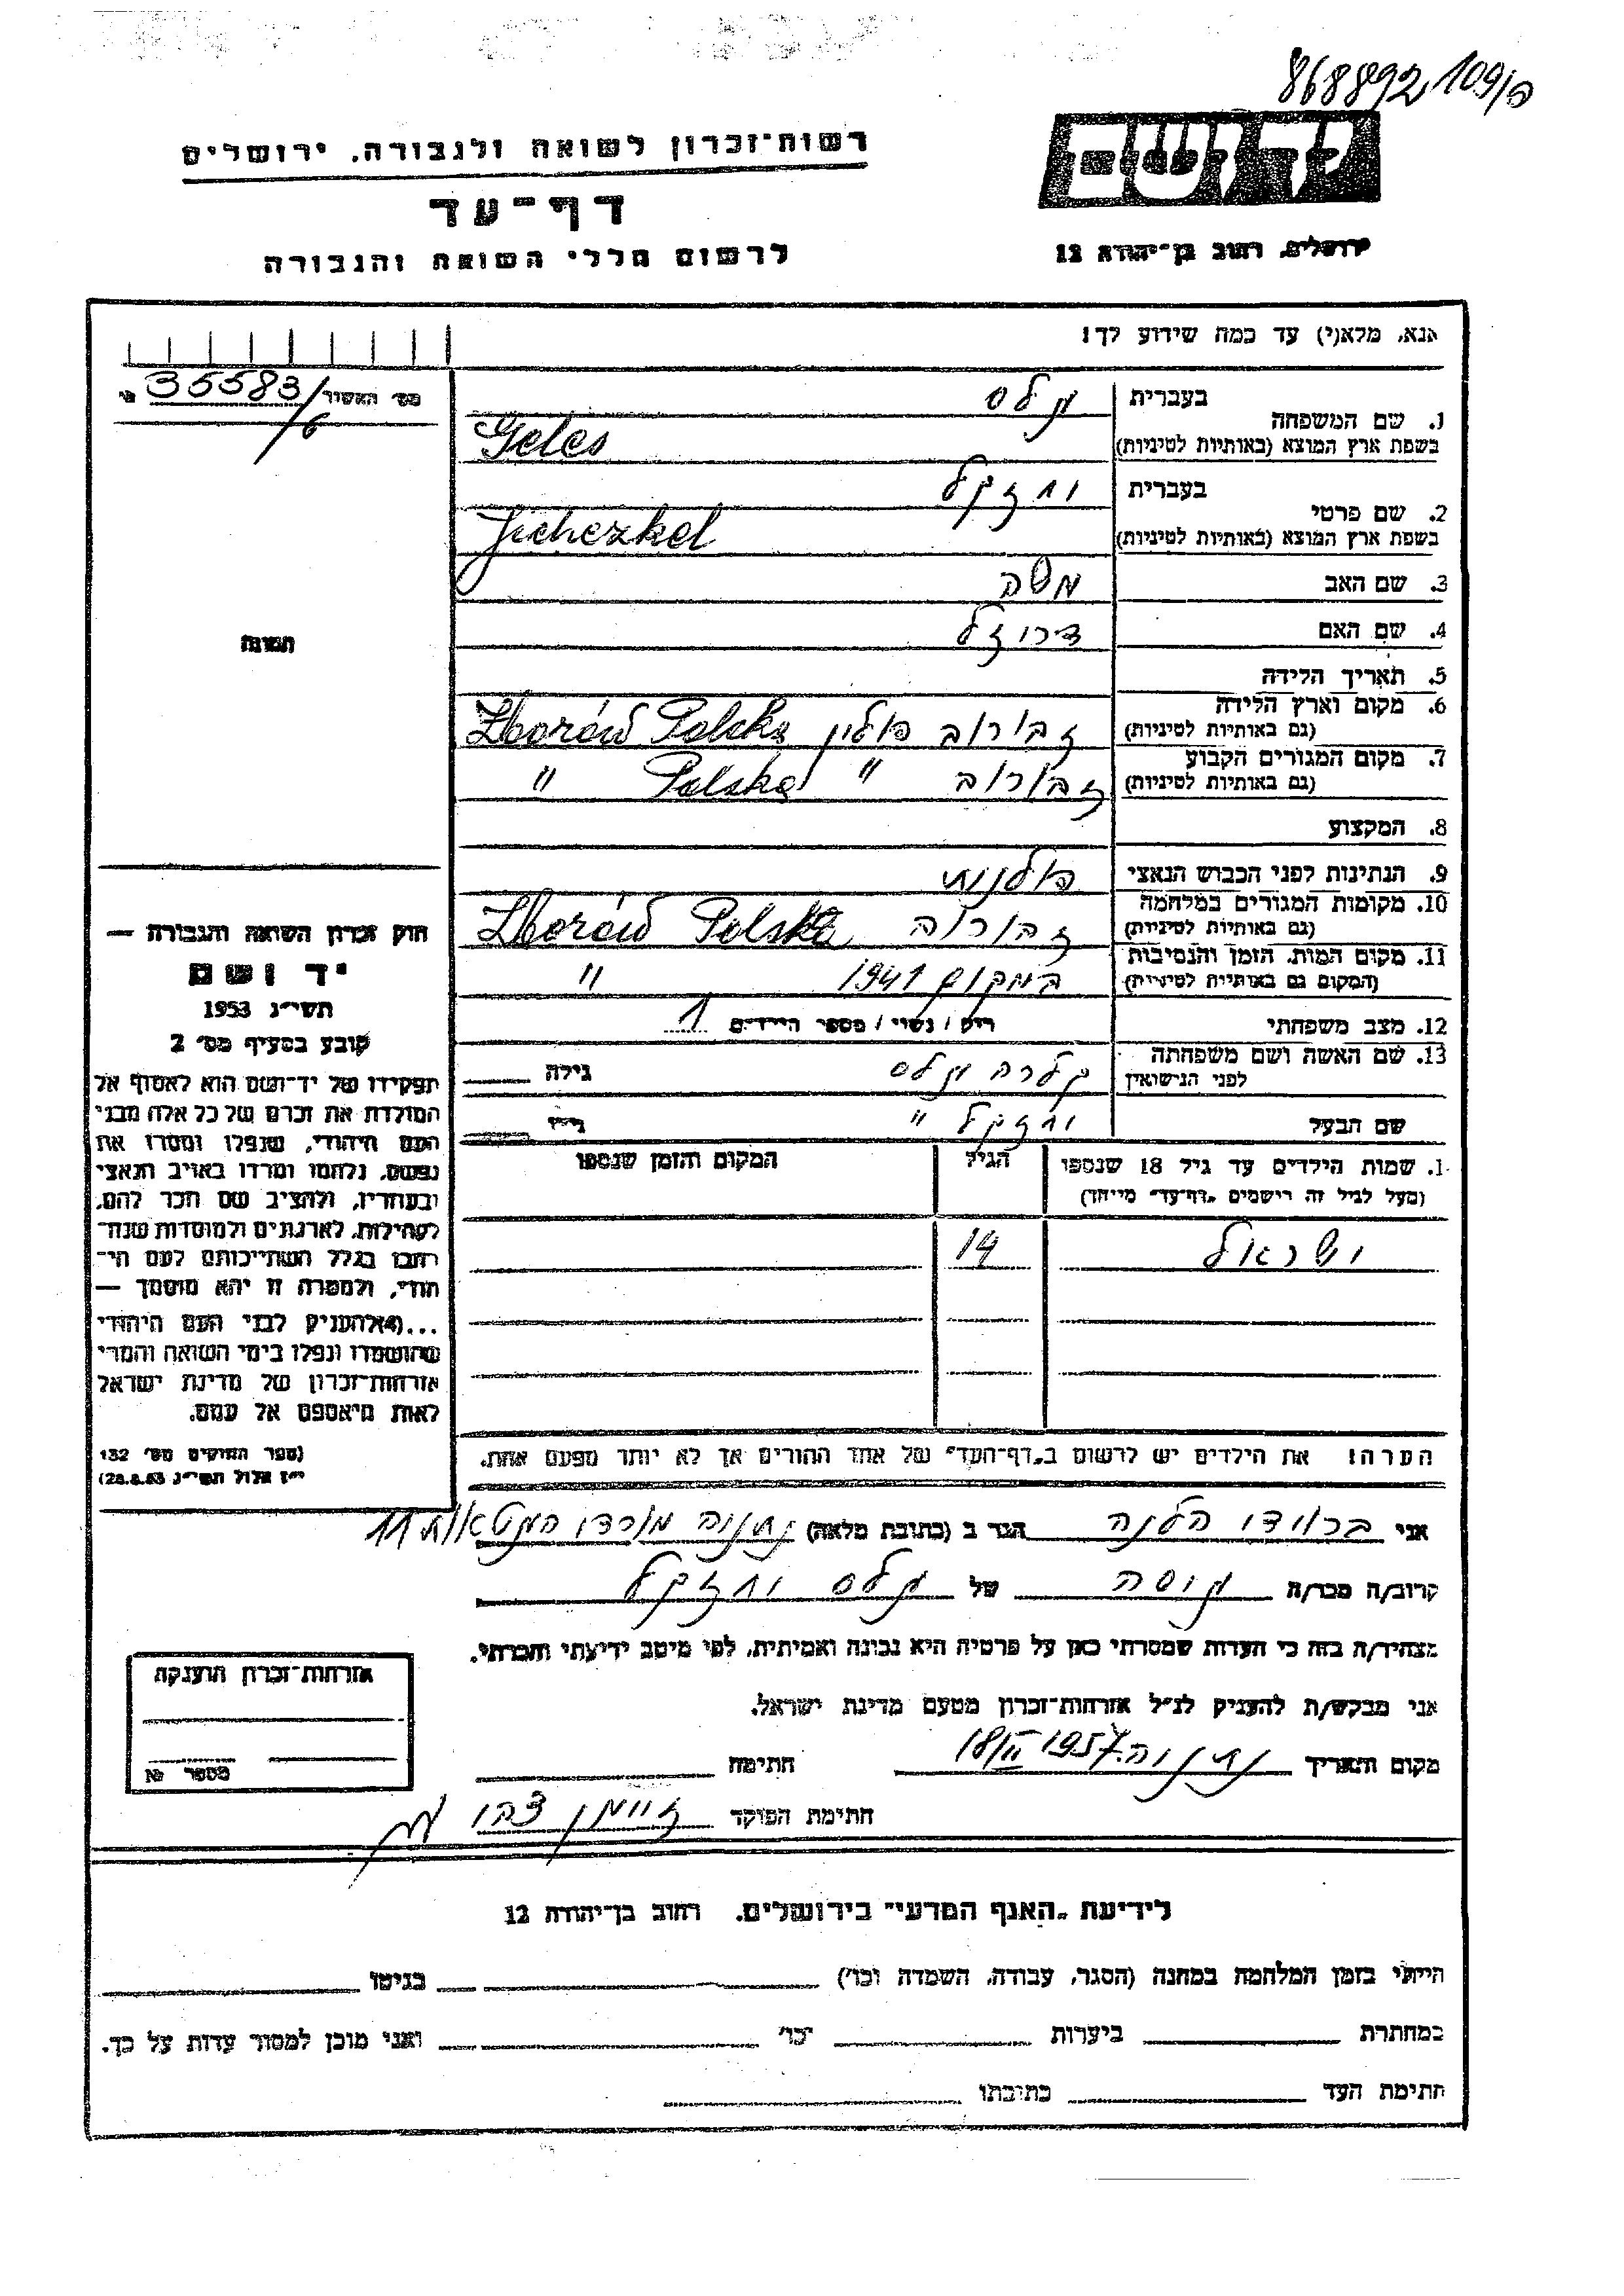 868892 109/פ
יד ושם
ירושלים, רחוב בן־יהודה 12
רשות־זכרון לשואה ולגבורה, ירושלים
דף־עד
לרשום חללי השואה והגבורה
אנא, מלא(י) עד כמה שידוע לך!
מס׳ האשיר 35583/6
1. שם המשפחה
בעברית גלס
בשפת ארץ המוצא (באותיות לטיניות) Geles
2. שם פרטי
בעברית יחזקל
בשפת ארץ המוצא (באותיות לטיניות) Jichezkel
3. שם האב משה
4. שם האם
5. תאריך הלידה
6. מקום וארץ הלידה
(גם באותיות לטיניות) זבורוב פולין Zborów Polska
7. מקום המגורים הקבוע
(גם באותיות לטיניות) זבורוב " Polska "
8. המקצוע
9. הנתינות לפני הכבוש הנאצי פולנית
10. מקומות המגורים במלחמה
(גם באותיות לטיניות) זבורוב Zborów Polska
11. מקום המות, הזמן והנסיבות
(המקום גם באותיות לטיניות) במקום 1941 "
12. מצב משפחתי רוק / נשוי / מספר הילדים 1
13. שם האשה ושם משפחתה
לפני הנישואין קלרה גלס גילה
שם הבעל יחזקל " גילו
1. שמות הילדים עד גיל 18 שנספו
(מעל לגיל זה רישמים "דף־עד" מייחד)
הגיל
המקום והזמן שנספו
ישראל 14
הערה: את הילדים יש לרשום ב"דף־העד" של אחד ההורים אך לא יותר מפעם אחת.
תמונה
חוק זכרון השואה והגבורה —
יד ושם
תשי״ג 1953
קובע בסעיף מס׳ 2
תפקידו של יד־ושם הוא לאסוף אל
המולדת את זכרם של כל אלה מבני
העם היהודי, שנפלו ומסרו את
נפשם, נלחמו ומרדו באויב הנאצי
ובעוזריו, ולהציב שם וזכר להם,
לקהילות, לארגונים ולמוסדות שנח־
רבו בגלל השתייכותם לעם הי־
הודי, ולמטרה זו יהא מוסמך —
...(4) להעניק לבני העם היהודי
שהושמדו ונפלו בימי השואה והמרי
אזרחות־זכרון של מדינת ישראל
לאות היאספם אל עמם.
(ספר החוקים מס׳ 132
י״ז אלול תשי״ג 28.8.53)
אני הלנה הגר ב (כתובת מלאה) נתניה 11
קרוב/ה מכר/ה גיסה של גלס יחזקל
מצהיר/ה בזה כי העדות שמסרתי כאן על פרטיה היא נכונה ואמיתית, לפי מיטב ידיעתי והכרתי.
אני מבקש/ת להעניק לנ״ל אזרחות־זכרון מטעם מדינת ישראל.
מקום ותאריך נתניה 18/II 1957 חתימה
חתימת הפוקד צבי
אזרחות־זכרון הוענקה
מספר №
לידיעת "האגף המדעי" בירושלים, רחוב בן־יהודה 12
הייתי בזמן המלחמה במחנה (הסגר, עבודה, השמדה וכו׳) בגיטו
במחתרת ביערות וכו׳ ואני מוכן למסור עדות על כך.
חתימת העד כתובתו